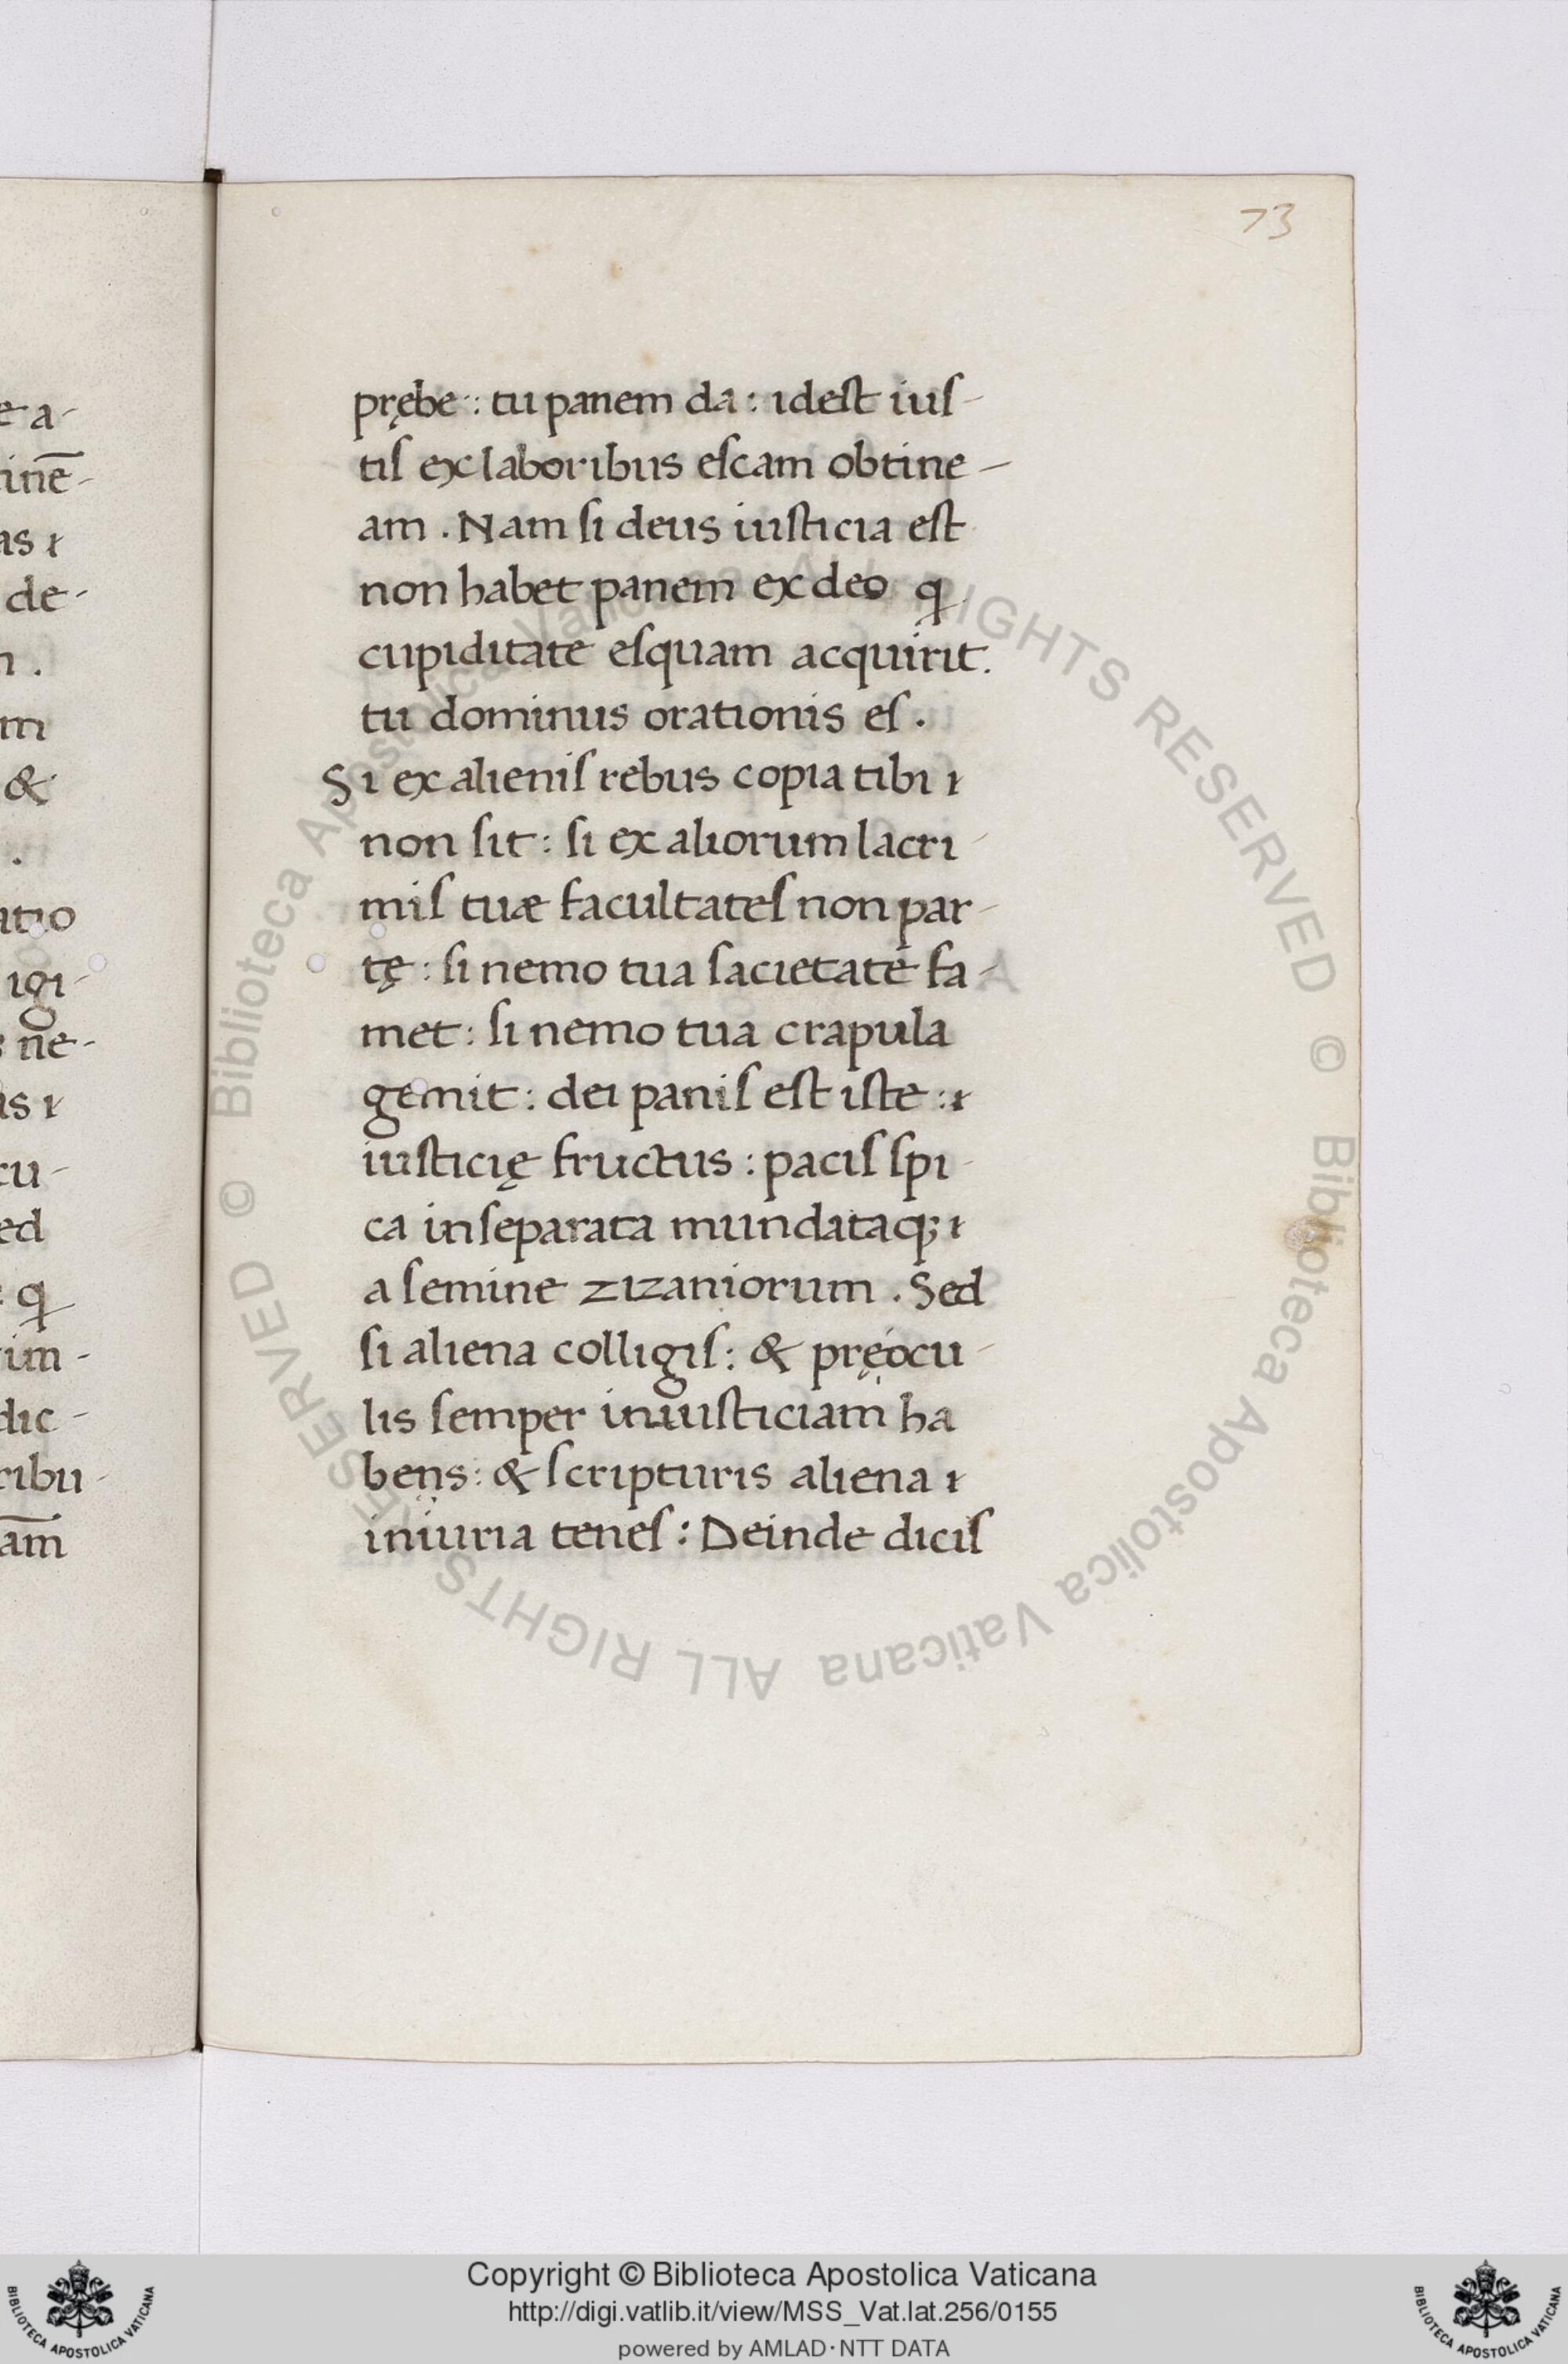 73
e a-
inē-
as
de-
n.
m
&
.
atio
igi-
ne-
as
cu-
ed
qͥ
im-
dic-
ribu-
am̄
prębe: tu panem da: idest iuſ-
tiſ ex laboribus eſcam obtine-
am. Nam ſi deus iuſticia eſt
non habet panem ex deo qͥ
cupiditate eſquam acquirit.
tu dominus orationis eſ.
Si ex alieniſ rebus copia tibi
non ſit: ſi ex aliorum lacri-
miſ tuæ facultateſ non par-
tę: ſi nemo tua ſacietate fa-
met: ſi nemo tua crapula
gemit: dei paniſ eſt iſte:
iuſticię fructus: paciſ ſpi-
ca inſeparata mundataq;
a ſemine zizaniorum. Sed
ſi aliena colligiſ: & pręocu-
lis ſemper iniuſticiam ha
bens: & ſcripturis aliena
iniuria teneſ: Deinde diciſ
© Biblioteca Apostolica Vaticana ALL RIGHTS RESERVED © Biblioteca Apostolica Vaticana ALL RIGHTS RESERVED
Copyright © Biblioteca Apostolica Vaticana
http://digi.vatlib.it/view/MSS_Vat.lat.256/0155
powered by AMLAD·NTT DATA
BIBLIOTECA APOSTOLICA VATICANA
BIBLIOTECA APOSTOLICA VATICANA